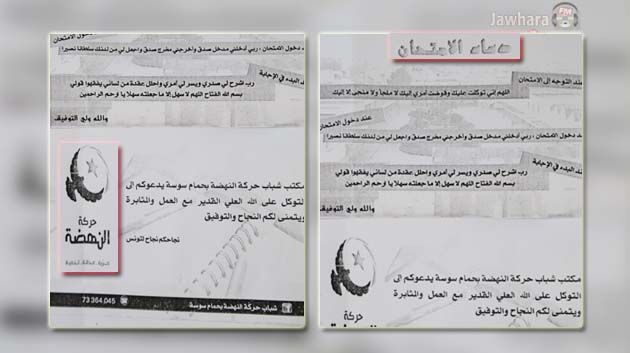 Jawhara FM
عند دخول الامتحان
دخول الامتحان ، ربي أدخلني مدخل صدق وأخرجني مخرج صدق واجعل لي من لدنك سلطانا نصيرا
عند البدء في الإجابة
رب اشرح لي صدري ويسر لي أمري واحلل عقدة من لساني يفقهوا قولي
بسم الله الفتاح اللهم لا سهل إلا ما جعلته سهلا يا ارحم الراحمين
والله ولي التوفيق
مكتب شباب حركة النهضة بحمام سوسة يدعوكم إلى
التوكل على الله العلي القدير مع العمل والمثابرة
ويتمنى لكم النجاح والتوفيق
نجاحكم نجاح لتونس
حركة
النهضة
شباب حركة النهضة بحمام سوسة
73 364 045
دعاء الامتحان
عند التوجه إلى الامتحان
اللهم إني توكلت عليك وفوضت أمري إليك لا ملجأ ولا منجى إلا إليك
عند دخول الامتحان
دخول الامتحان ، ربي أدخلني مدخل صدق وأخرجني مخرج صدق واجعل لي من لدنك سلطانا نصيرا
عند البدء في الإجابة
رب اشرح لي صدري ويسر لي أمري واحلل عقدة من لساني يفقهوا قولي
بسم الله الفتاح اللهم لا سهل إلا ما جعلته سهلا يا ارحم الراحمين
والله ولي التوفيق
مكتب شباب حركة النهضة بحمام سوسة يدعوكم إلى
التوكل على الله العلي القدير مع العمل والمثابرة
ويتمنى لكم النجاح والتوفيق
حركة